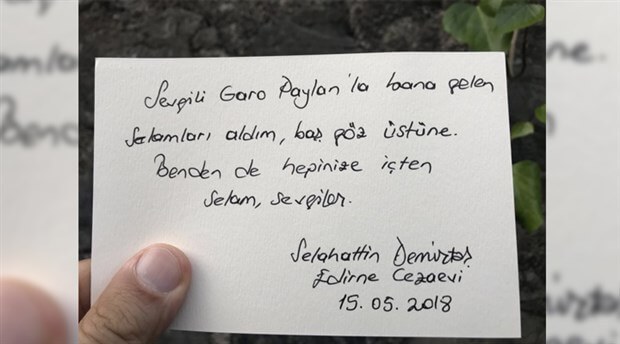 Sevgili Garo Paylan'la bana gelen
selamları aldım, baş göz üstüne.
Benden de hepinize içten
selam, sevgiler.
Selahattin Demirtaş
Edirne Cezaevi
15.05.2018